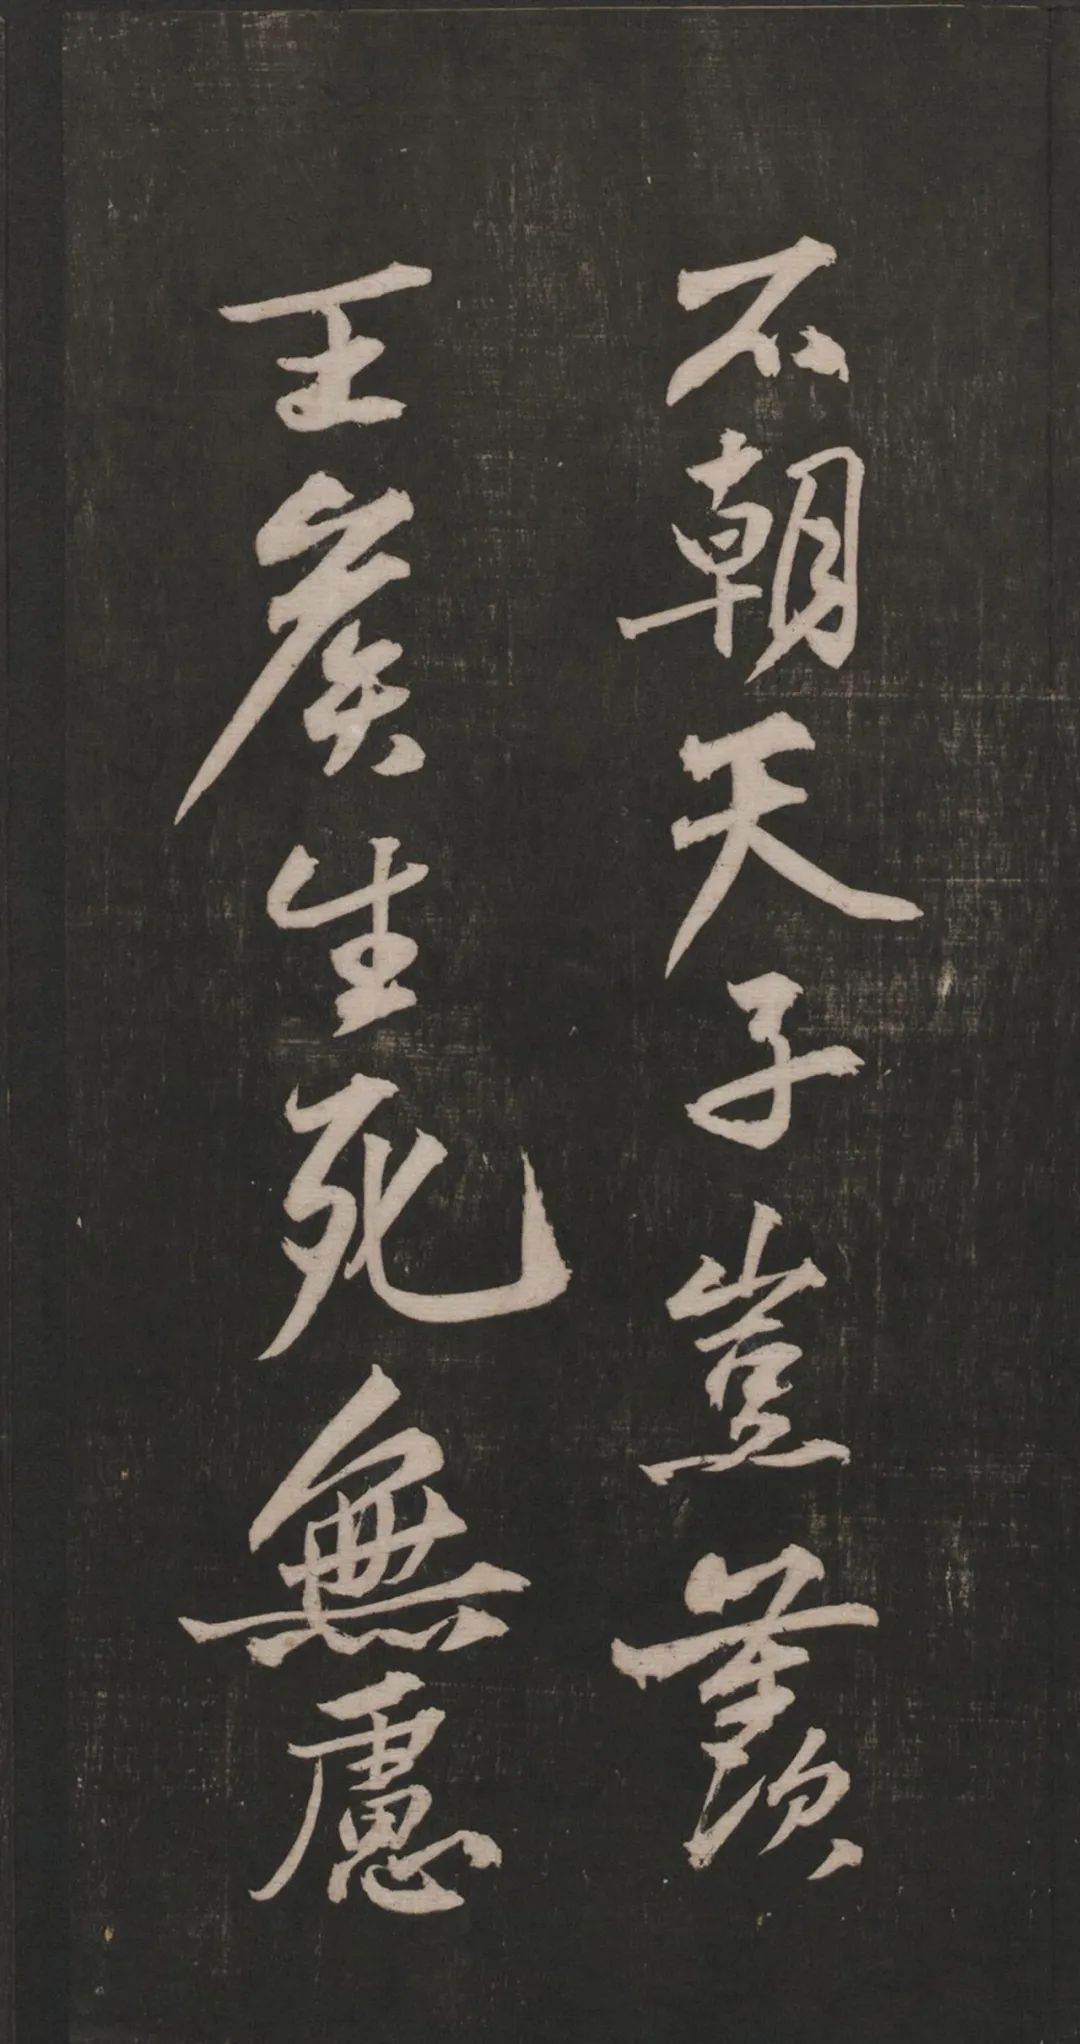 不朝天子豈羨
王矦生死無慮